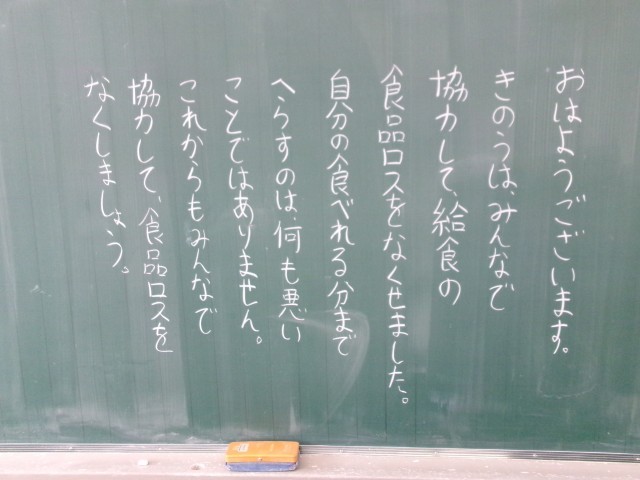 おはようございます。
きのうは、みんなで
協力して、給食の
食品ロスをなくせました。
自分の食べれる分まで
へらすのは、何も悪い
ことではありません。
これからもみんなで
協力して、食品ロスを
なくしましょう。